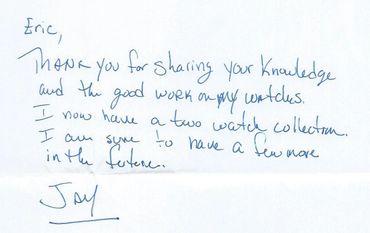 Eric,
Thank you for sharing your knowledge
and the good work on my watches.
I now have a two watch collection.
I am sure to have a few more
in the future.
Jay